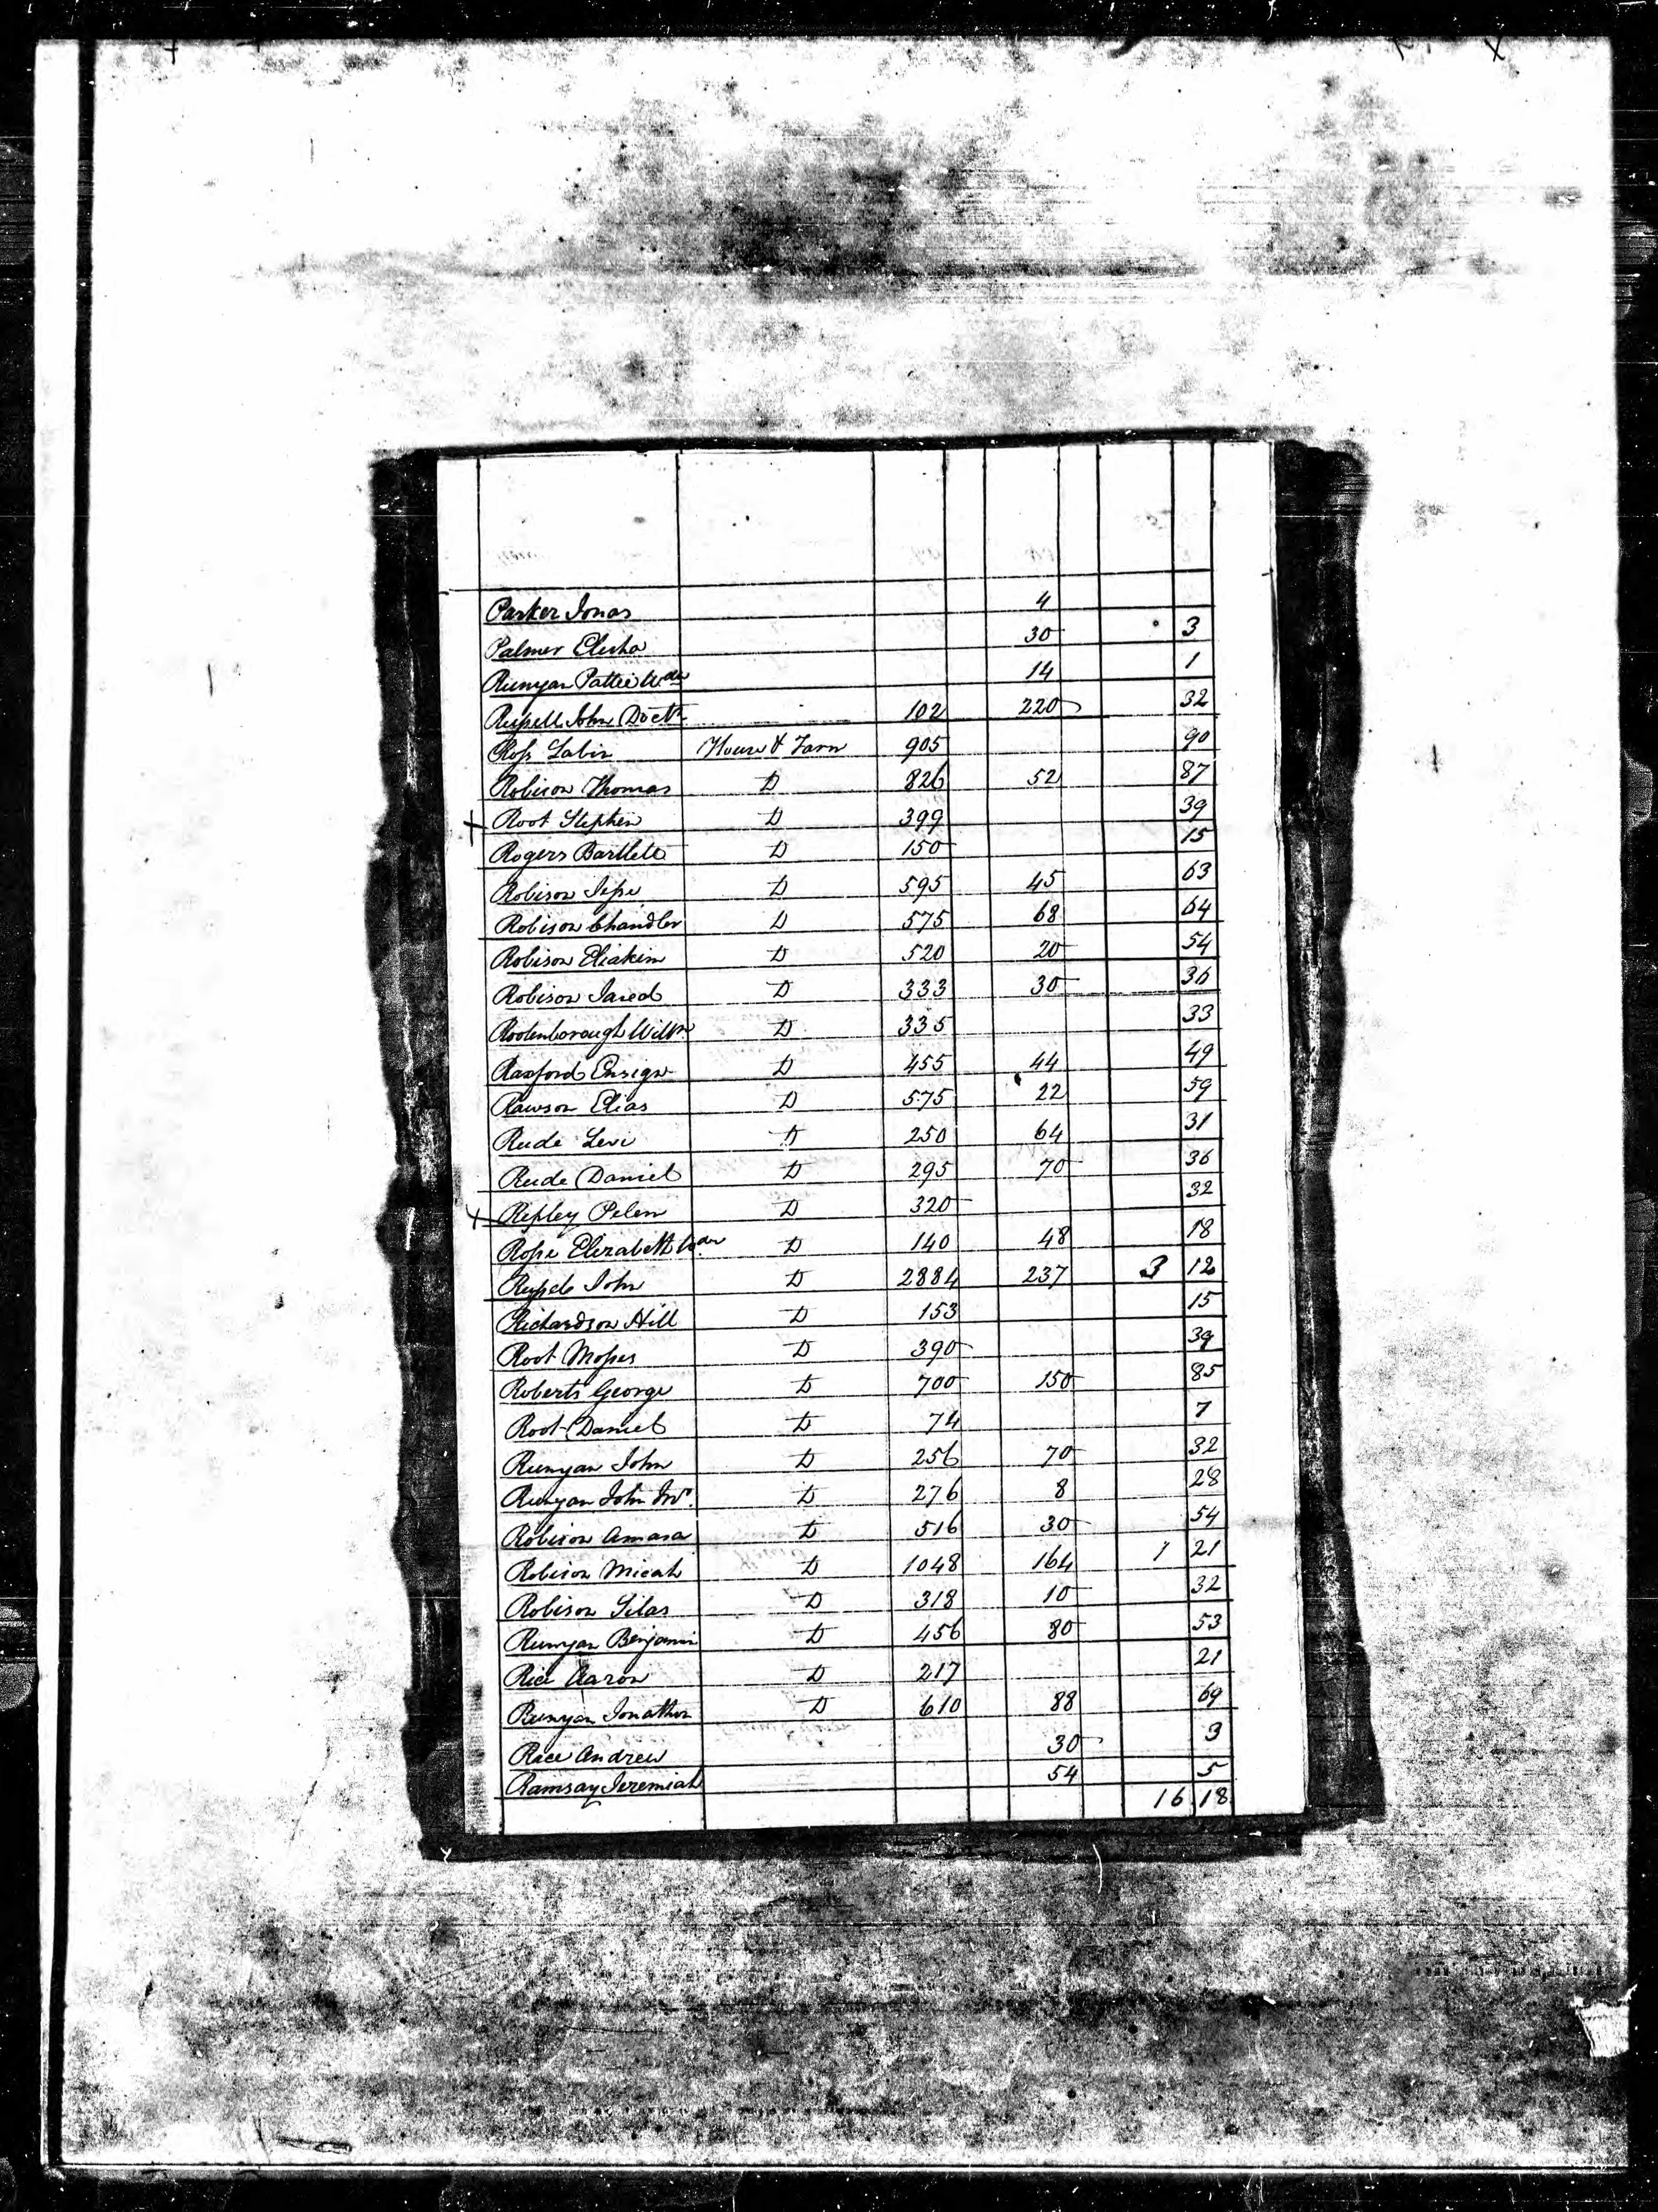 Parker Jonas 4
Palmer Elisha 30 3
Runyan Pattee Wdw 14 1
Russell John Doctr 102 220 32
Ross Labin House & Farm 905 90
Robison Thomas D 826 52 87
+ Root Stephen D 399 39
Rogers Bartlett D 150 15
Robison Jesse D 595 45 63
Robison Chandler D 575 68 64
Robison Eliakim D 520 20 54
Robison Jared D 333 30 36
Rosenborough Willm D 335 33
Raxford Ensign D 455 44 49
Rawson Elias D 575 22 59
Rude Levi D 250 64 31
Rude Daniel D 295 70 36
+ Repley Pelem D 320 32
Rose Elizabeth Wdw D 140 48 18
John D 2884 237 3 12
Richardson Hill D 153 15
Root Mosses D 390 39
Roberts George D 700 150 85
Root Daniel D 74 7
Runyan John D 256 70 32
Runyan John Jnr. D 276 8 28
Robison Amasa D 516 30 54
Robison Micah D 1048 164 1 21
Robison Silas D 318 10 32
Runyan Benjamin D 456 80 53
Rice Aaron D 217 21
Runyan Jonathan D 610 88 69
Rice Andrew 30 3
Ramsay Jeremiah 54 5
16 18